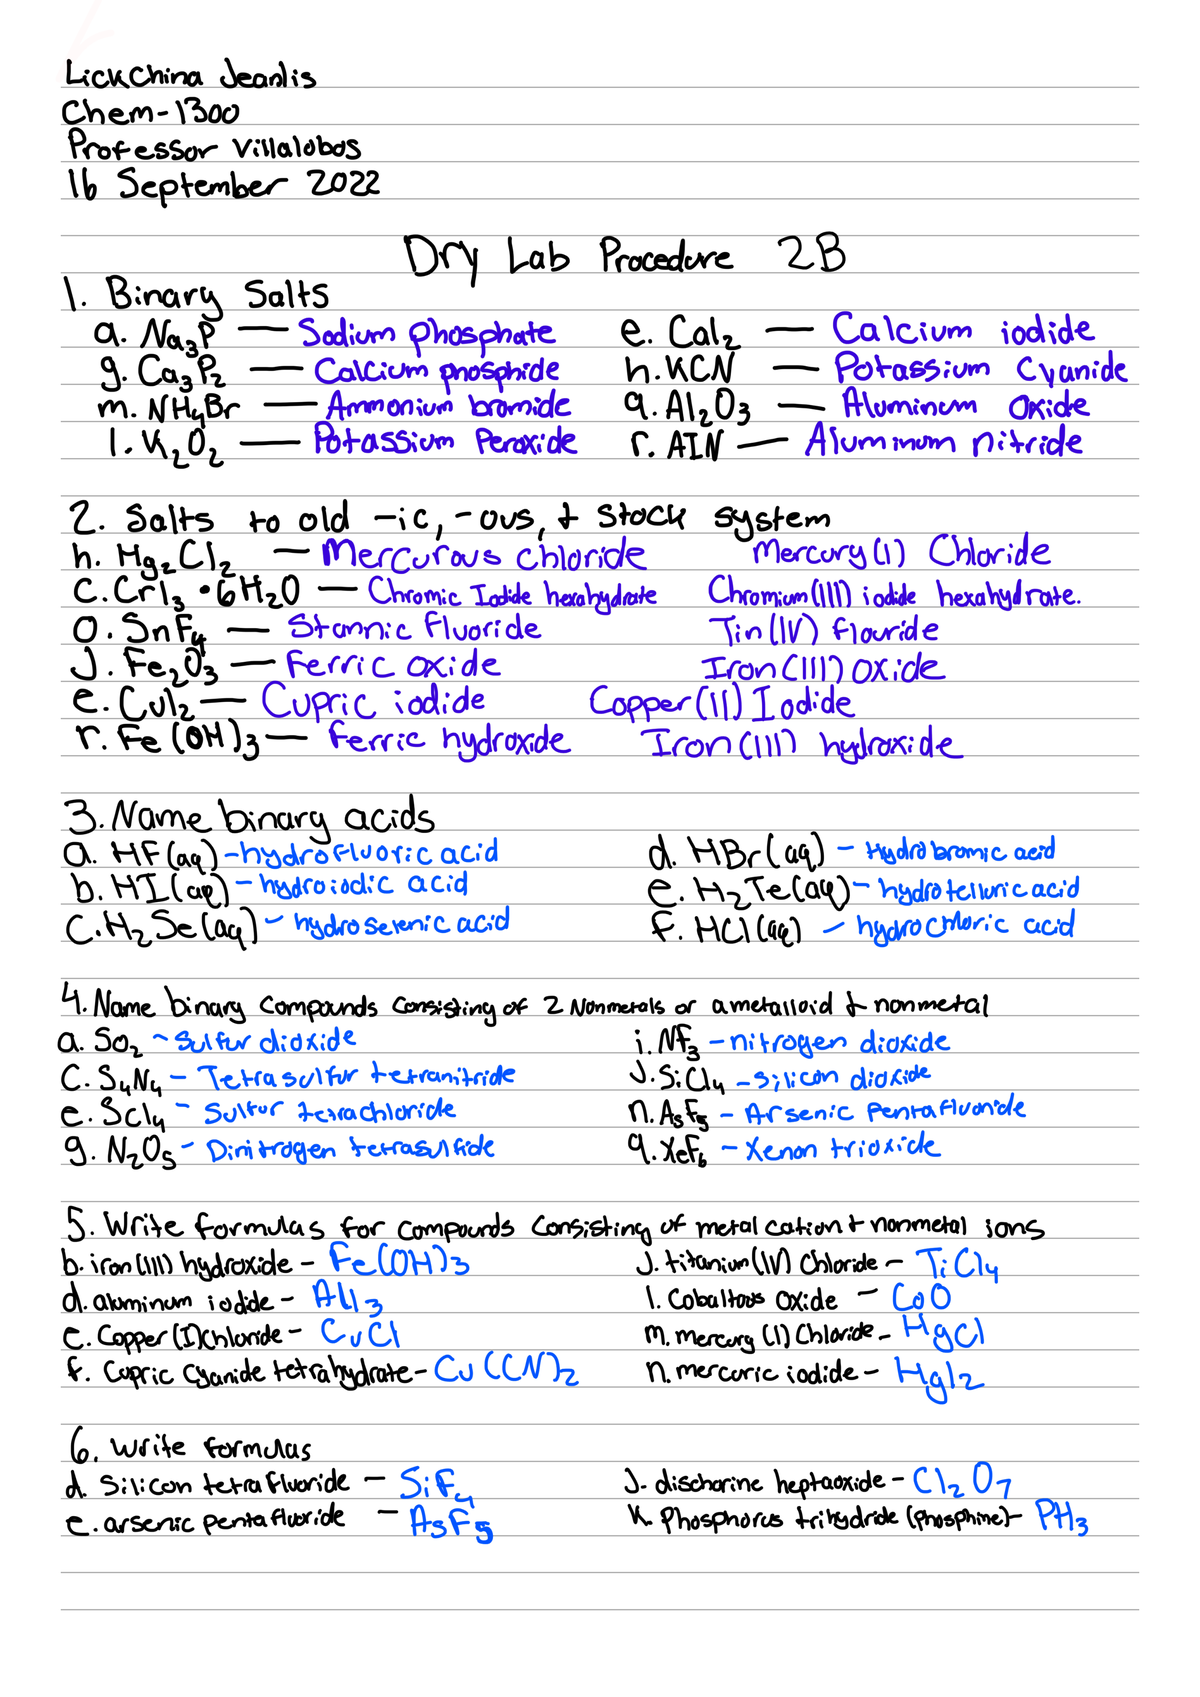 LickChina Jeanlis
Chem-1300
Professor Villalobos
16 September 2022
Dry Lab Procedure 2B
1. Binary Salts
a. Na₃P — Sodium Phosphate e. CaI₂ — Calcium iodide
g. Ca₃P₂ — Calcium phosphide h. KCN — Potassium Cyanide
m. NH₄Br — Ammonium bromide q. Al₂O₃ — Aluminum Oxide
l. K₂O₂ — Potassium Peroxide r. AlN — Aluminum nitride
2. Salts to old -ic, -ous, & Stock system
h. Hg₂Cl₂ — Mercurous chloride Mercury(I) Chloride
C. CrI₃ • 6H₂O — Chromic Iodide hexahydrate Chromium(III) iodide hexahydrate.
O. SnF₄ — Stannic Fluoride Tin(IV) flouride
J. Fe₂O₃ — Ferric oxide Iron(III) oxide
e. CuI₂ — Cupric iodide Copper(II) Iodide
r. Fe(OH)₃ — Ferric hydroxide Iron(III) hydroxide
3. Name binary acids
a. HF(aq) - hydrofluoric acid d. HBr(aq) - Hydrobromic acid
b. HI(aq) - hydroiodic acid e. H₂Te(aq) - hydrotelluric acid
C. H₂Se(aq) - hydroselenic acid f. HCl(aq) - hydrochloric acid
4. Name binary Compounds Consisting of 2 Nonmetals or a metalloid & nonmetal
a. SO₂ ~ Sulfur dioxide i. NF₃ - nitrogen dioxide
C. S₄N₄ - Tetrasulfur tetranitride J. SiCl₄ - Silicon dioxide
e. SCl₄ - Sulfur tetrachloride n. AsF₅ - Arsenic Pentafluoride
g. N₂O₅ - Dinitrogen tetrasulfide q. XeF₆ - Xenon trioxide
5. Write formulas for Compounds Consisting of metal cation & nonmetal ions
b. iron(III) hydroxide - Fe(OH)₃ J. titanium(IV) Chloride - TiCl₄
d. aluminum iodide - AlI₃ l. Cobaltous Oxide - CoO
e. Copper(I)Chloride - CuCl m. mercury(I) Chloride - HgCl
f. Cupric Cyanide tetrahydrate - Cu(CN)₂ n. mercuric iodide - HgI₂
6. Write formulas
d. Silicon tetrafluoride - SiF₄ J. dischorine heptaoxide - Cl₂O₇
e. arsenic pentafluoride - AsF₅ K. Phosphorus trihydride (phosphine) - PH₃